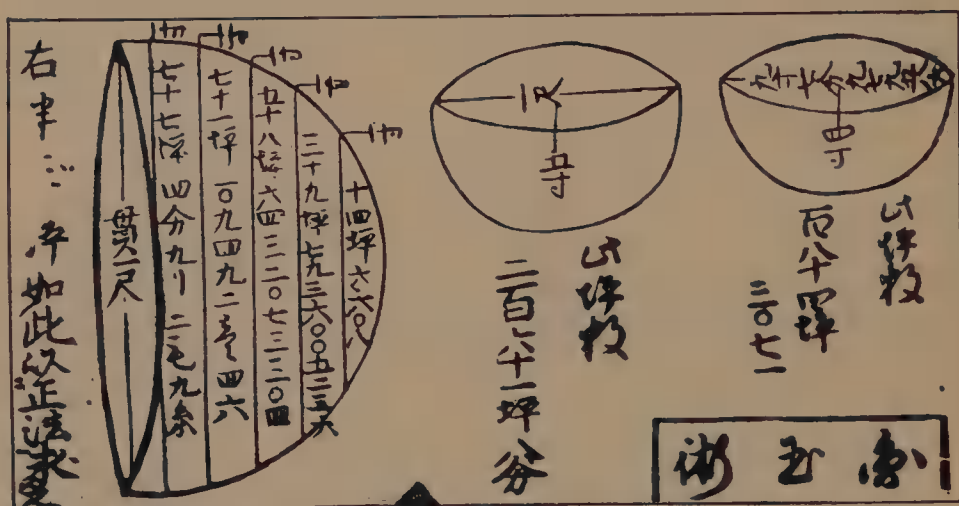 玉術
四寸
此坪数
百八十四坪
三〇七一
一尺
五寸
此坪数
二百六十一坪八分
一寸
一寸
一寸
一寸
一寸
十四坪六六〇八
三十九坪七九三六〇〇五三三六
五十八坪六四三二〇七三三二〇四
七十一坪一〇九四九二四六
七十七坪四分九リ二毛九糸
貫一尺
右 如此以正法求